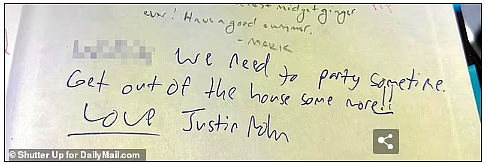 midget ginger
ever! Have a good summer.
- MARIC
We need to party sometime.
Get out of the house some more!!
Love Justin
© Shutter Up for DailyMail.com